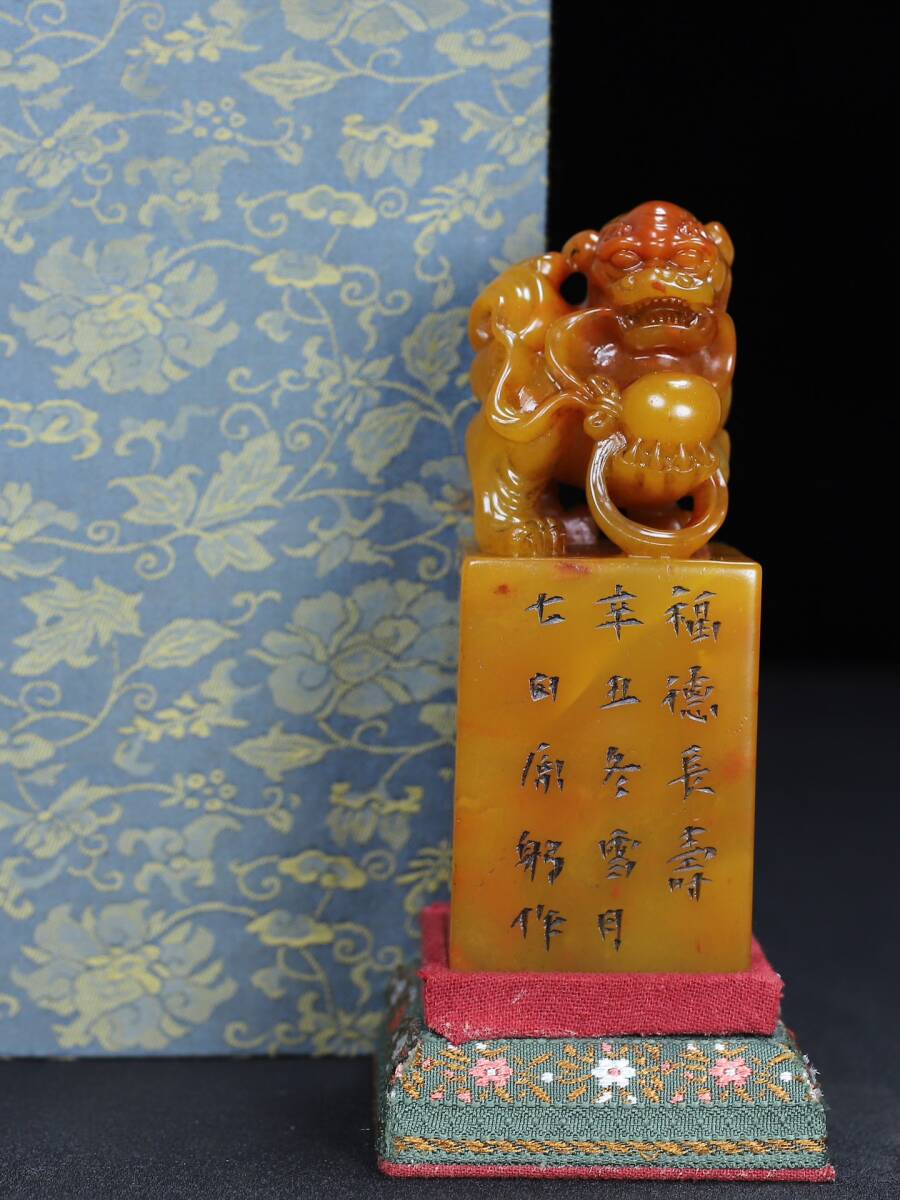 福德長壽
辛丑冬雪月
七日康躬作